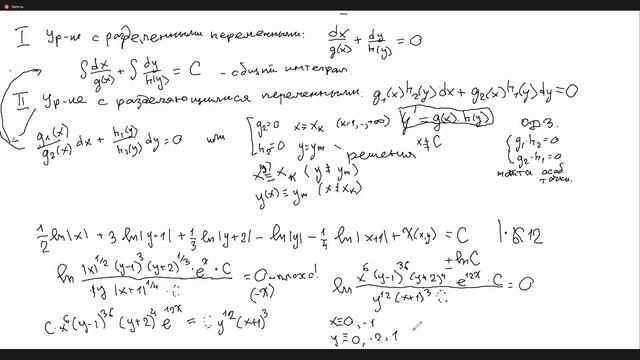 Запись
I Ур-ие с разделенными переменными: dx/g(x) + dy/h(y) = 0
∫dx/g(x) + ∫dy/h(y) = C - общий интеграл.
II Ур-ие с разделяющимися переменными. g₁(x)h₂(y)dx + g₂(x)h₁(y)dy = 0
y' = g(x)·h(y)
g₁(x)/g₂(x) dx + h₁(y)/h₂(y) dy = 0 или [g₂=0 x=xₖ (x=1,-,∞)
h₂=0 y=yₘ - решения x≢C
x ≡ xₖ (y ≠ yₘ)
y(x) ≡ yₘ (x ≠ xₖ)
ОДЗ.
{g₁·h₂=0
g₂·h₁=0
найти особ. точки.
1/2 ln|x| + 3 ln|y-1| + 1/3 ln|y+2| - ln|y| - 1/4 ln|x+1| + x(x,y) = C |·12
± ln C
ln |x|^{1/2} (y-1)³ (y+2)^{1/3} · eˣ · C / y |x+1|^{1/4} = 0 - плохо!
(-x)
ln x⁶ (y-1)³⁶ (y+2)⁴ · e^{12x} · C / y¹² (x+1)³ = 0
C·x⁶(y-1)³⁶ (y+2)⁴ e^{12x} = y¹² (x+1)³
x≡0, -1
y≡0, -2, 1